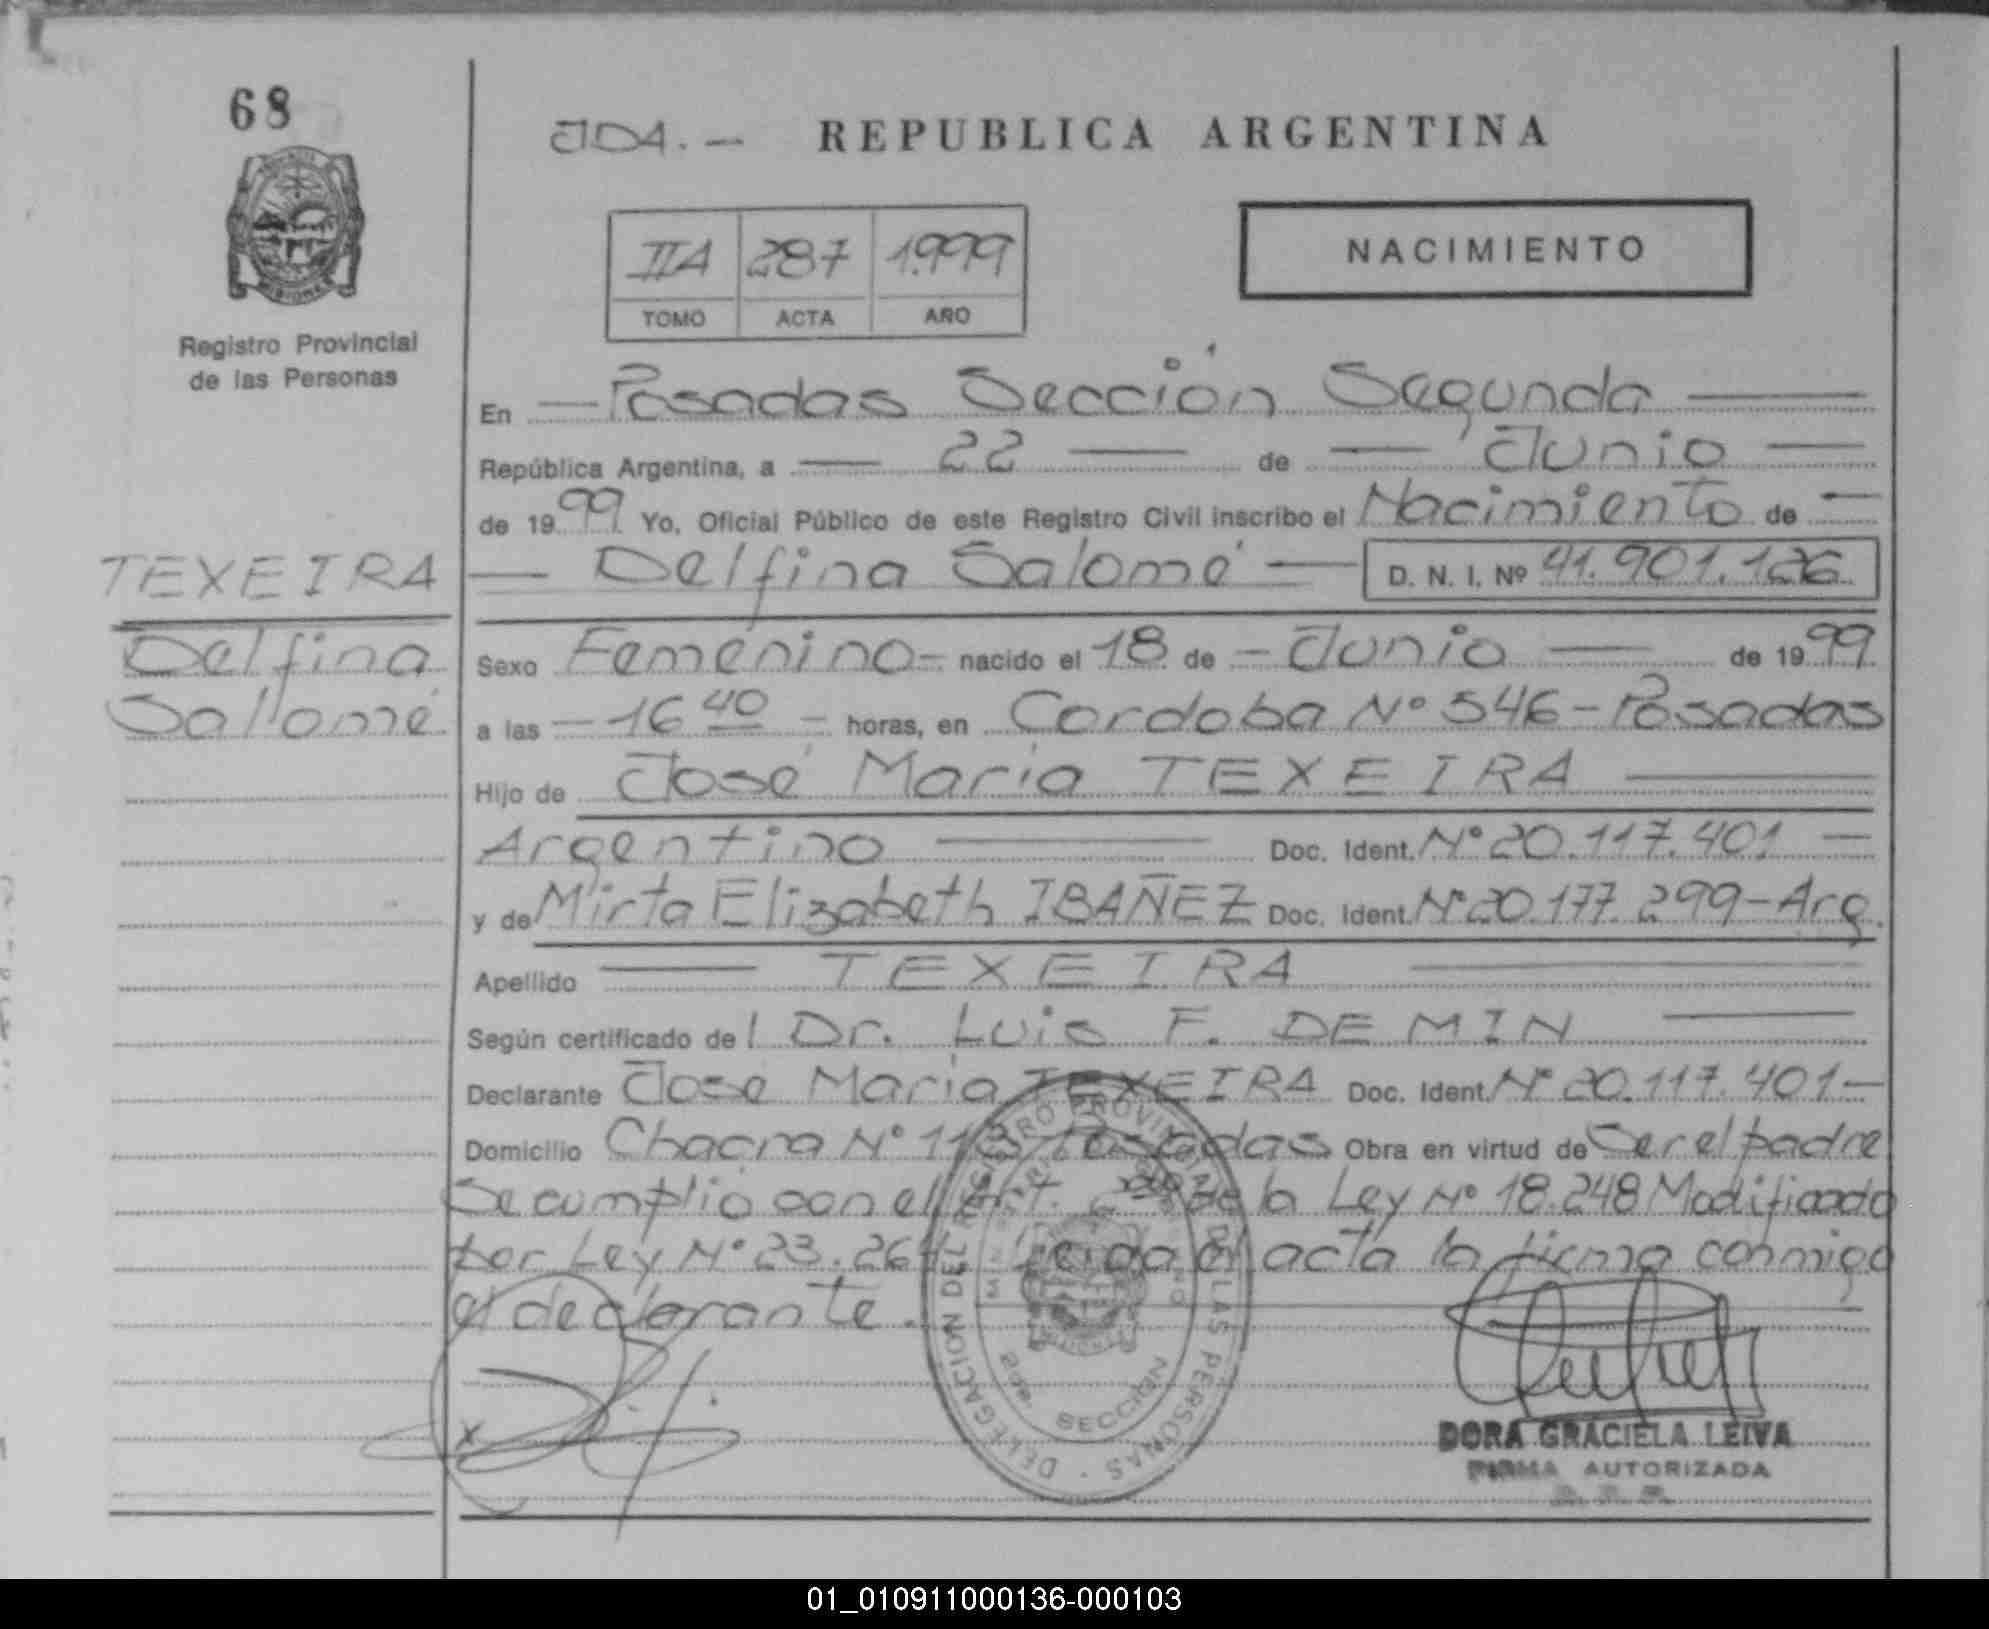 68
JDA.- REPUBLICA ARGENTINA
IIA 287 1.999
TOMO ACTA AÑO
NACIMIENTO
Registro Provincial
de las Personas
En Posadas Sección Segunda
República Argentina, a 22 de Junio
de 1999 Yo, Oficial Público de este Registro Civil inscribo el Nacimiento de
TEXEIRA
Delfina Salomé D. N. I. Nº 41.901.126
Delfina
Salomé
Sexo Femenino - nacido el 18 de - Junio de 1999
a las - 16 40 - horas, en Cordoba Nº 546 - Posadas
Hijo de José Maria TEXEIRA
Argentino Doc. Ident. Nº 20.117.401
y de Mirta Elizabeth IBAÑEZ Doc. Ident. Nº 20.177.299 - Arg.
Apellido TEXEIRA
Según certificado del Dr. Luis F. DE MIN
Declarante José Maria TEXEIRA Doc. Ident. Nº 20.117.401 -
Domicilio Chacra Nº 113 Posadas Obra en virtud de Ser el padre
Se cumplió con el Art. de la Ley Nº 18.248 Modificado
por Ley Nº 23.264. Leida el acta la firma conmigo
el declarante.
DELEGACION DEL REGISTRO PROVINCIAL DE LAS PERSONAS
2da. SECCION
DORA GRACIELA LEIVA
FIRMA AUTORIZADA
01_010911000136-000103